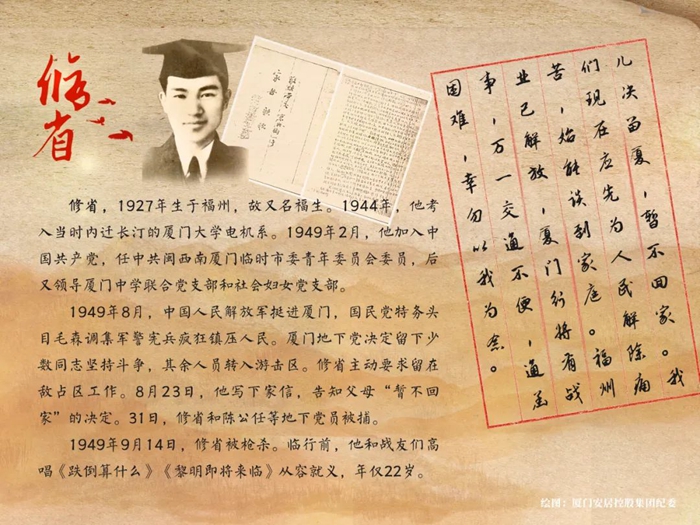 修省
儿决留厦，暂不回家。我
们现在应先为人民解除痛
苦，焉能谈到家庭。福州
业已解放，厦门行将有战
事，万一交通不便，通函
困难，幸勿以我为念。
修省，1927年生于福州，故又名福生。1944年，他考
入当时内迁长汀的厦门大学电机系。1949年2月，他加入中
国共产党，任中共闽西南厦门临时市委青年委员会委员，后
又领导厦门中学联合党支部和社会妇女党支部。
1949年8月，中国人民解放军挺进厦门，国民党特务头
目毛森调集军警宪兵疯狂镇压人民。厦门地下党决定留下少
数同志坚持斗争，其余人员转入游击区。修省主动要求留在
敌占区工作。8月23日，他写下家信，告知父母“暂不回
家”的决定。31日，修省和陈公任等地下党员被捕。
1949年9月14日，修省被枪杀。临行前，他和战友们高
唱《跌倒算什么》《黎明即将来临》从容就义，年仅22岁。
绘图：厦门安居控股集团纪委